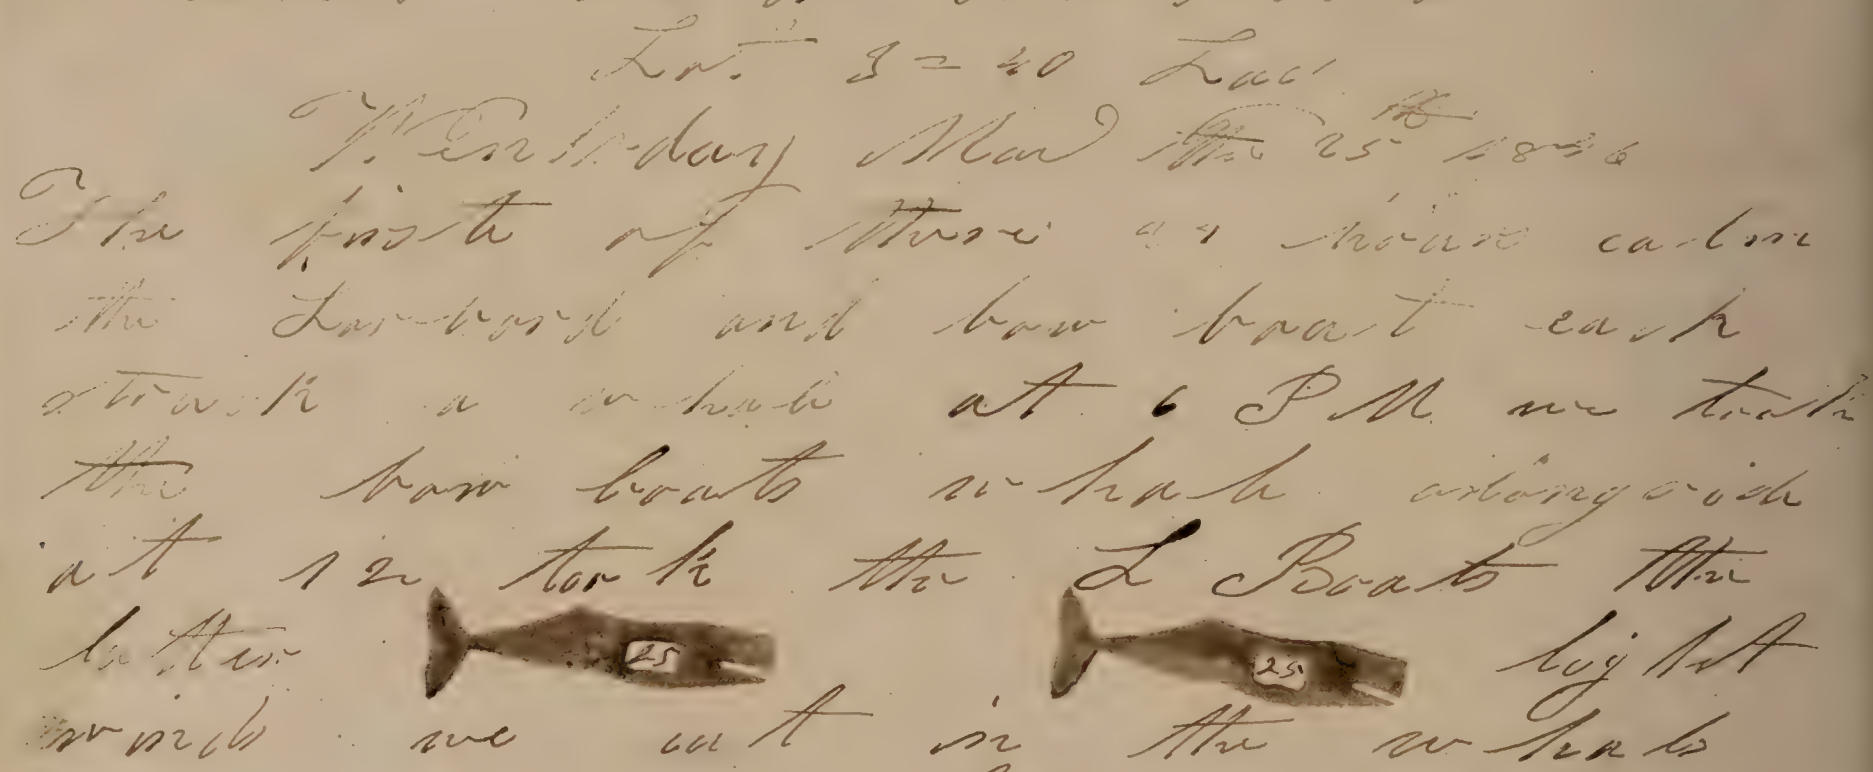 Lat 3 = 40 Lad
Wensday Mar the 25th 1836
The firste of these 24 hours calm
the Larbord and bow boat each
struck a whale at 6 PM we took
the bow boats whale alongside
at 12 took the L Boats the
latter 25 25 light
winds we cut in the whals